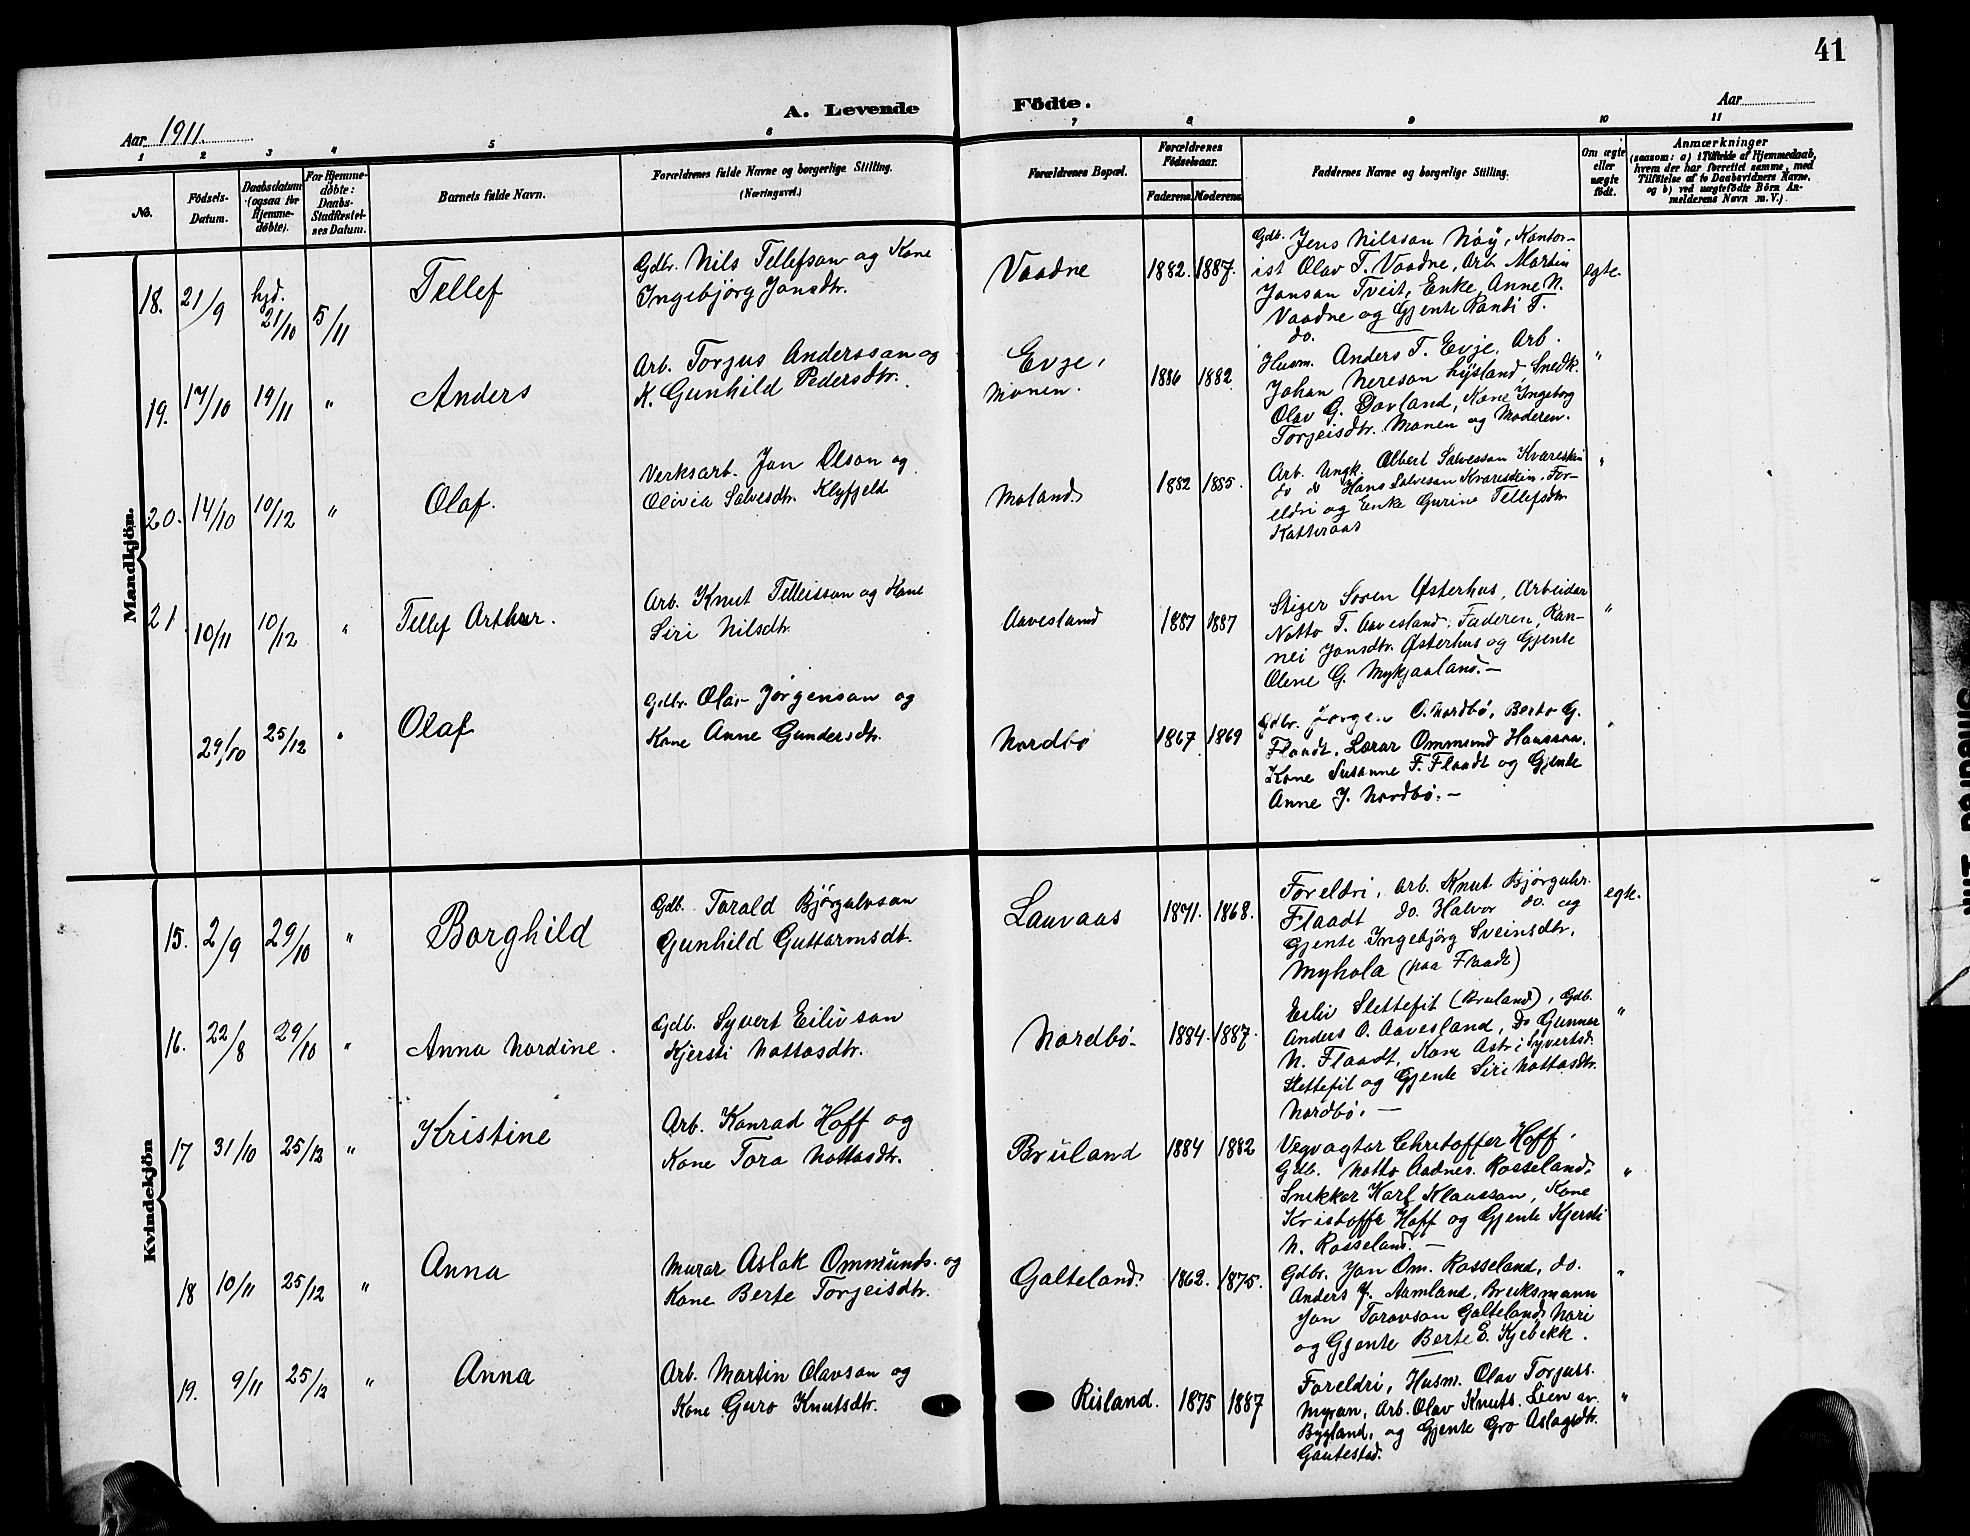 41
A. Levende Födte.
Aar 1911.
Aar
1 2 3 4 5 6 7 8 9 10 11
No.
Födsels-
Datum.
Daabsdatum
(ogsaa for
Hjemme-
døbte).
For Hjemme-
døbte:
Daabs-
Stadfæstel-
ses Datum.
Barnets fulde Navn.
Forældrenes fulde Navne og borgerlige Stilling.
(Næringsvei.)
Forældrenes Bopæl.
Forældrenes
Födselsaar.
Faderens. Moderens.
Faddernes Navne og borgerlige Stilling.
Om ægte
eller
uægte
født.
Anmærkninger
(saasom: a) i Tilfælde af Hjemmedaab,
hvem der har forrettet samme, med
Tilföielse af to Daabsvidners Navne,
og b) ved uægtefödte Börn An-
melderens Navn m. V.)
Mandkjön.
18. 21/9 hjd. 21/10 5/11
Tellef
Gdbr. Nils Tellefson og Kone
Ingebjörg Jonsdtr.
Vaadne
1882. 1887.
Gdb. Jens Nilsson Nöÿ, Kontor-
ist Olav T. Vaadne, Arb. Martin
Jonson Tveit, Enke Anne N.
Vaadne og Gjente Randi T.
do.
egte.
19. 17/10 19/11 "
Anders
Arb. Torgus Anderssan og
K. Gunhild Pedersdtr.
Evje,
Monen.
1886 1882
Husm. Anders T. Evje, Arb.
Johan Nereson Lÿsland Snedk.
Olav G. Dovland, Kone Ingeborg
Torjeisdtr. Monen og Moderen.
"
20. 14/10 10/12 "
Olaf.
Verksarb. Jon Olson og
Olivia Salvesdtr. Klyfjeld
Moland
1882 1885.
Arb. Ungk. Olbert Salvesson Kvarestein
do do Hans Salveson Kvarestein, For-
eldri og Enke Gurine Tellefsdtr.
Katteraas
"
21 10/11 10/12 "
Tellef Arthur.
Arb. Knut Telleisson og Kone
Siri Nilsdtr.
Aavesland
1887 1887
Stiger Sören Østerhus, Arbeider
Notto T. Aavesland, Faderen, Ran-
nei Jonsdtr. Østerhus og Gjente
Olene G. Mykjaaland. -
"
29/10 25/12 "
Olaf
Gdbr. Olav Jørgenson og
Kone Anne Gundersdtr.
Nordbø
1867 1869
Gdbr. Jørgen O. Nordbø, Berto G.
Flaadt, Lærar Ommund Hansson,
Kone Susanne F. Flaadt og Gjente
Anne J. Nordbø. -
"
Kvindekjön
15. 2/9 29/10 "
Borghild
Gdb. Torald Bjørgulvson
Gunhild Guttormsdt.
Lauvaas
1871. 1868.
Foreldri, Arb. Knut Bjørgulvs.
Flaadt do. Halvor do. og
Gjente Ingebjörg Sveinsdtr.
Myhola (paa Flaadt)
egte.
16. 22/8 29/10 "
Anna Nordine.
Gdb. Syvert Eilivson
Kjersti Nottosdtr.
Nordbø.
1884. 1887.
Eiliv Slettefit (Bruland), Gdb.
Anders O. Aavesland, Do Gunnar
N. Flaadt, Kone Astri Syvertsd.
Slettefit og Gjente Siri Nottosdtr.
Nordbø. -
"
17 31/10 25/12 "
Kristine
Arb. Konrad Hoff og
Kone Tora Nottosdtr.
Brüland
1884 1882
Vegvogtar Christoffer Hoff,
Gdb. Notto Aadnes. Rosseland,
Snikkar Karl Klausson, Kone
Kristoffe Hoff og Gjente Kjersti
N. Rosseland. -
"
18 10/11 25/12 "
Anna
Murar Aslak Ommünds. og
Kone Berte Torjeisdtr.
Galteland.
1862. 1875.
Gdbr. Jon Om. Rosseland, do.
Anders J. Aamland, Bruksmann
Jon Toravson Galteland, Nari
og Gjente Berte E. Kjebekk.
"
19. 9/11 25/12 "
Anna
Arb. Martin Olavson og
Kone Guro Knutsdtr.
Risland.
1875 1887
Foreldri, Husm. Olav Torjuss.
Myran, Arb. Olav Knuts. Lien av
Bygland, og Gjente Gro Aslagsdtr.
Gautestad.
"